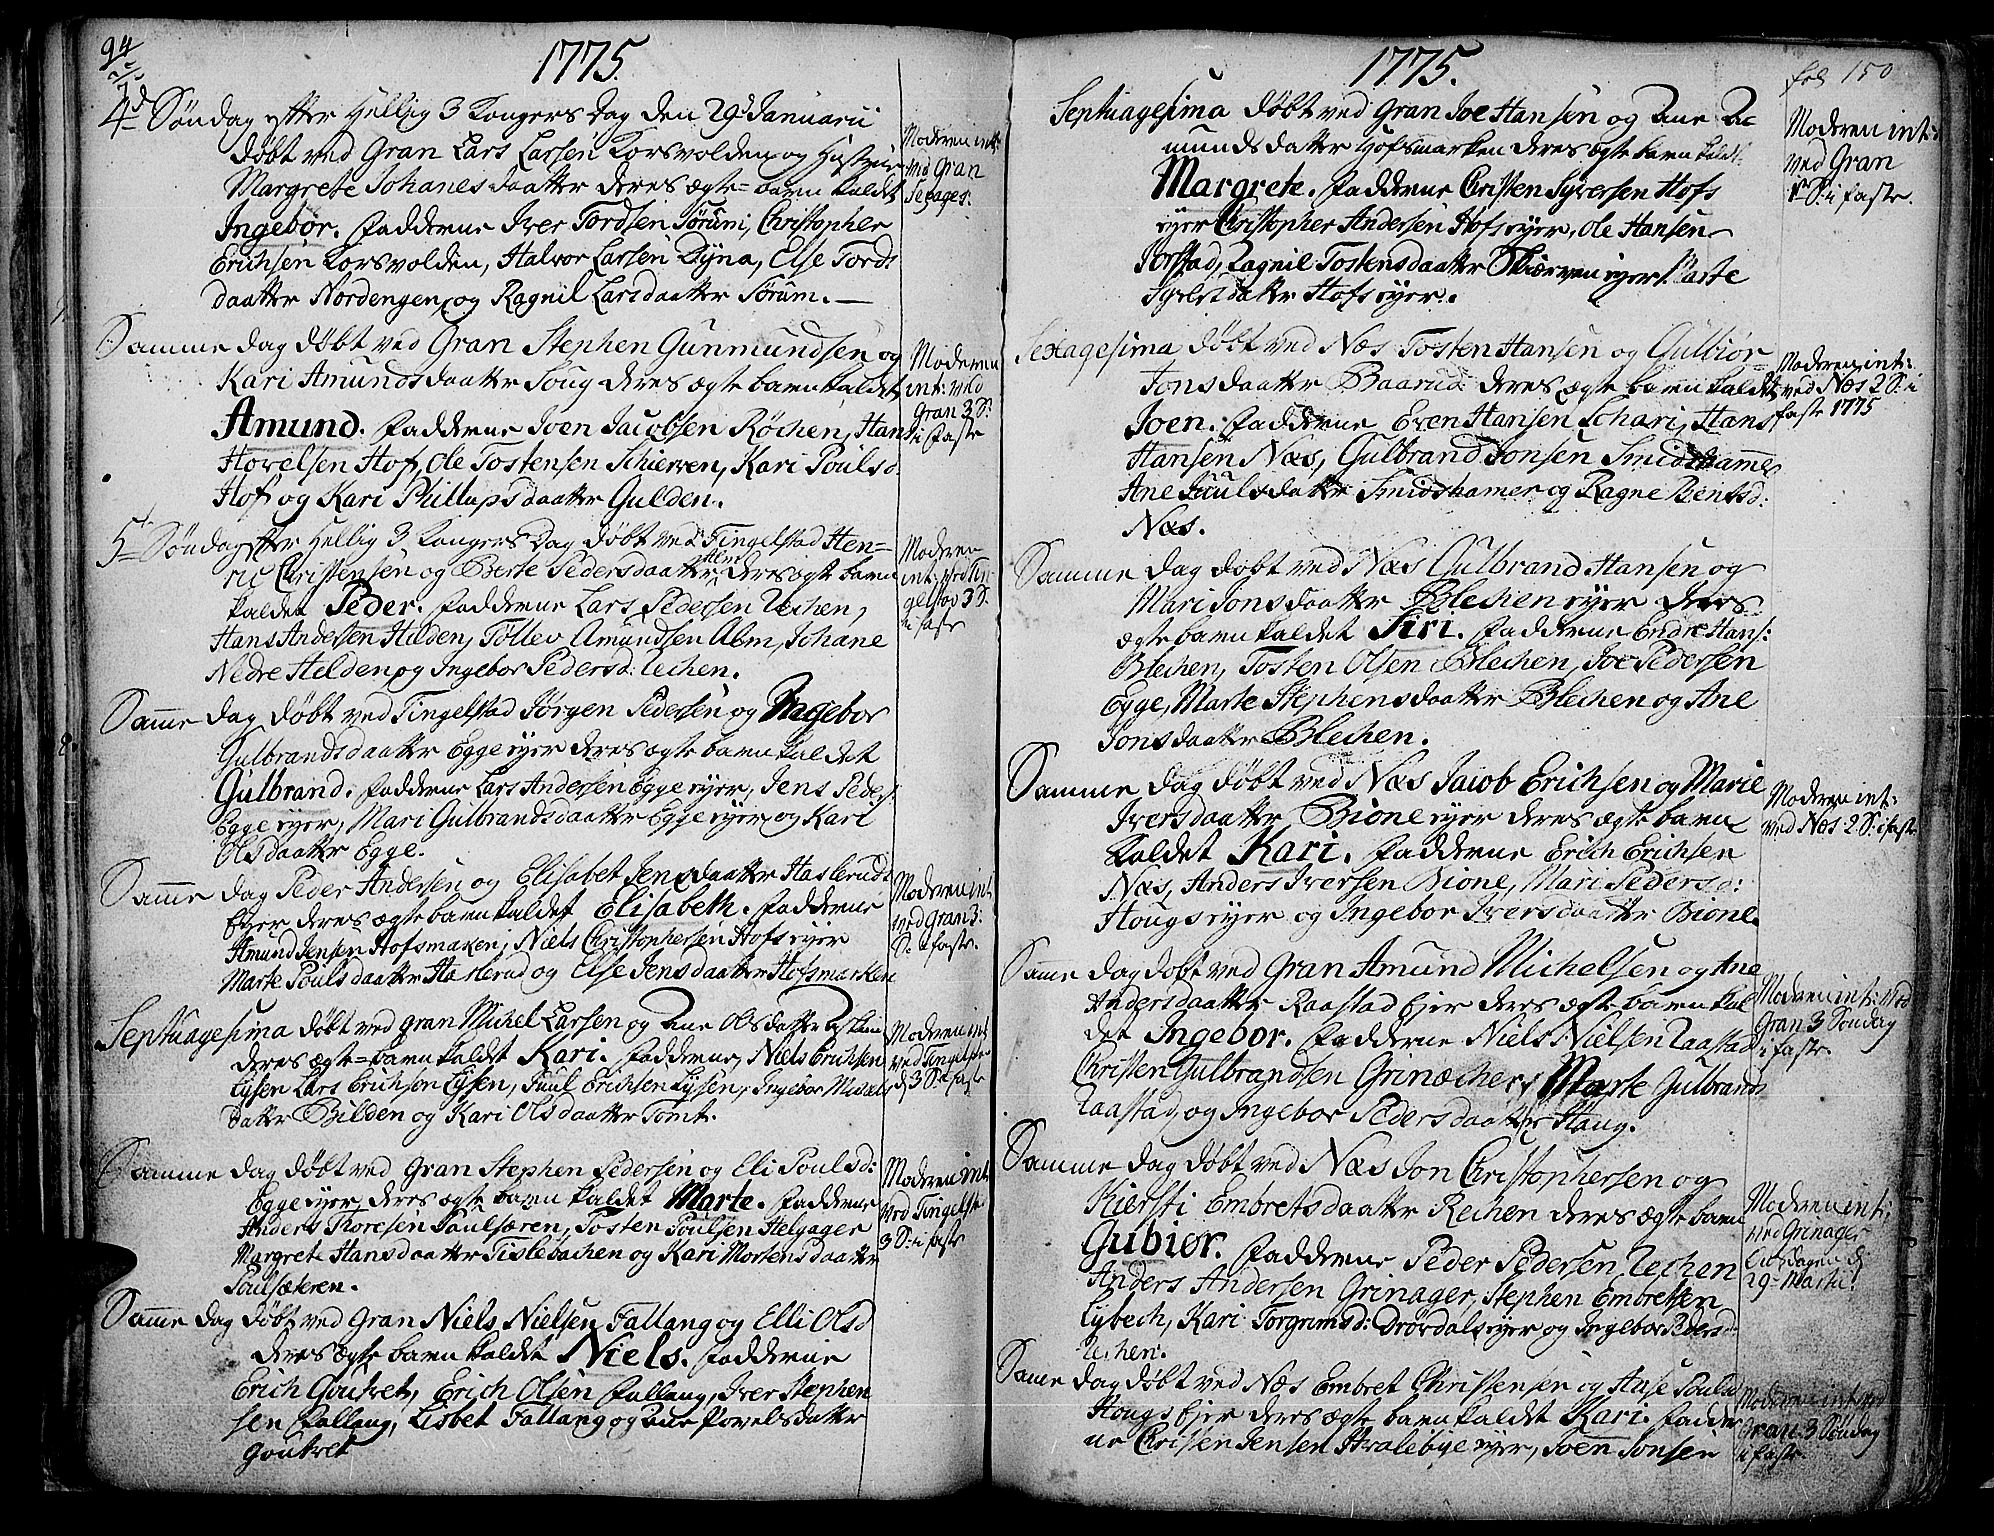 94
1775.
4d Søndag efter Hellig 3 Kongers Dag den 29d Januarii
døbt ved Gran Lars Larsen Korsvolden og Hustrue
Margrete Johanesdaatter deres ægte=barn kaldet
Ingebor. Fadderne Iver Tordsen Sørum, Christopher
Erichsen Korsvolden, Halvor Larsen Dyna, Else Tords
daatter Nordengen, og Ragnil Larsdaatter Sørum.
Moderen int:
ved Gran
Sexages:
Samme dag døbt ved Gran Stephen Gunmundsen og
Kari Amundsdaatter Soug deres ægte barn kaldet
Amund. Fadderne Joen Jacobsen Røchen, Hans
Hovelsen Hof, Ole Tostensen Schierven, Kari Poulsd.
Hof og Kari Phillupsdaatter Gulden.
Moderen
int: ved
Gran 3 S:
i faste
5t Søndag efter Hellig 3 Kongers Dag døbt ved Tingelstad Hen=
ric Christensen og Berte Pedersdaatter Alm deres ægte barn
kaldet Peder. Fadderne Lars Pedersen Rechen,
Hans Andersen Helden, Tøllev Amundsen Alm, Johane
Nedre Helden og Ingebor Pedersd: Rechen.
Moderen
int: ved Tin
gelstad 3 S.
i faste
Samme dag døbt ved Tingelstad Jørgen Pedersen og Ingebor
Gulbrandsdaatter Egge eyer deres ægte barn kaldet
Gulbrand. Fadderne Lars Andersen Egge eyer, Jens Peders.
Egge eyer, Mari Gulbrandsdaatter Egge eyer og Kari
Olsdaatter Egge.
Samme dag Peder Andersen og Elisabet Jensdaatter Haslerud
Eyer deres ægte barn kaldet Elisabeth. Fadderne
Amund Jensen Hofsmaken, Niels Christophersen Hofs eyer
Marte Poulsdaatter Haslerud og Else Jensdaatter Hofsmarken
Moderen int:
ved Gran 3:
S: i faste.
Septuagesima døbt ved Gran Michel Larsen og Ane Olsdatter Lysen
deres ægte=barn kaldet Kari. Fadderne, Niels Erichsen
Lysen Lars Erichsen Lysen, Juul Erichsen Lysen, Ingebor Michels
datter Bilden og Kari Olsdaatter Tomt.
Moderen int
ved Tingelstad
d 3 S: i faste
Samme dag døbt ved Gran Stephen Pedersen og Eli Poulsd:
Egge eyer deres ægte barn kaldet Marte. Fadderne
Anders Thoresen Poulsæren, Tosten Poulsen Helgager
Margrete Hansdaatter Tislebachen og Kari Mortensdaatter
Poulsæteren.
Moderen int
ved Tingelst:
3 S: i faste
Samme dag døbt ved Gran Niels Nielsen Fallang og Elli Olsd
deres ægte barn kaldet Niels. Fadderne
Erich Goukret, Erich Olsen Fallang, Iver Stephen
sen Fallang, Lisbet Fallang og Ane Povelsdatter
Goukret
1775.
fol 150
Septuagesima døbt ved Gran Joe Hansen og Ane A=
mundsdatter Hofsmarken deres ægte barn kaldt
Margrete. Fadderne Christen Syversen Hofs
eyer Christopher Andersen Hofs eyer, Ole Hansen
Jorstad, Ragnil Tostensdaatter Skierven eyer Marte
Hofs eyer.
Moderen int:
ved Gran
1 S: i faste.
Sexagesima døbt ved Næs Tosten Hansen og Gulbiør
Jonsdaatter Baarud deres ægte barn kaldet
Joen. Fadderne Even Hansen Schari, Hans
Hansen Næs, Gulbrand Jonsen Smidshammer
Ane Juulsdatter Smidshamer og Ragne Bentsd:
Næs.
Moderen int:
ved Næs 2 S: i
faste 1775
Samme dag døbt ved Næs Gulbrand Hansen og
Mari Jonsdaatter Blechen eyer deres
ægte barn kaldet Siri. Fadderne Endre Hans:
Blechen, Tosten Olsen Blechen, Joe Pedersen
Egge, Marte Stephensdaatter Blechen og Ane
Jonsdaatter Blechen.
Samme dag døbt ved Næs Jacob Erichsen og Marie
Iversdaatter Bione eyer deres ægte barn
kaldet Kari. Fadderne Erich Erichsen
Næs, Anders Iversen Bione, Mari Pedersd:
Hougs eyer og Ingebor Iversdaatter Bione.
Moderen int:
ved Næs 2 S: i faste
Samme dag døbt ved Gran Amund Michelsen og Ane
Andersdaatter Raastad Ejer deres ægte barn kal
det Ingebor. Fadderne Niels Nielsen Raastad
Christen Gulbrandsen Grinæcher, Marte Gulbrands
Raastad, og Ingebor Pedersdaatter Haug.
Moderen int: ved
Gran 3 Søndag
i faste.
Samme dag døbt ved Næs Jon Christophersen og
Kiersti Embretsdaatter Rechen deres ægte barn
Gubiør. Fadderne Peder Pedersen Rechen
Anders Andersen Grinager, Stephen Embretsen
Lybech, Kari Torgrimsd: Drøvdals eyer og Ingebor Pedersd:
Rechen.
Moderen int:
ved Grinager
d
29 Martii
Samme dag døbt ved Næs Embret Christensen og Anse Poulsd
Hougs Ejer deres ægte barn kaldet Kari. Fadder
ne Christen Jensen Hvalebye eyer, Joen Jonsen
Moderen int ved
Gran 3 Søndag
i faste.